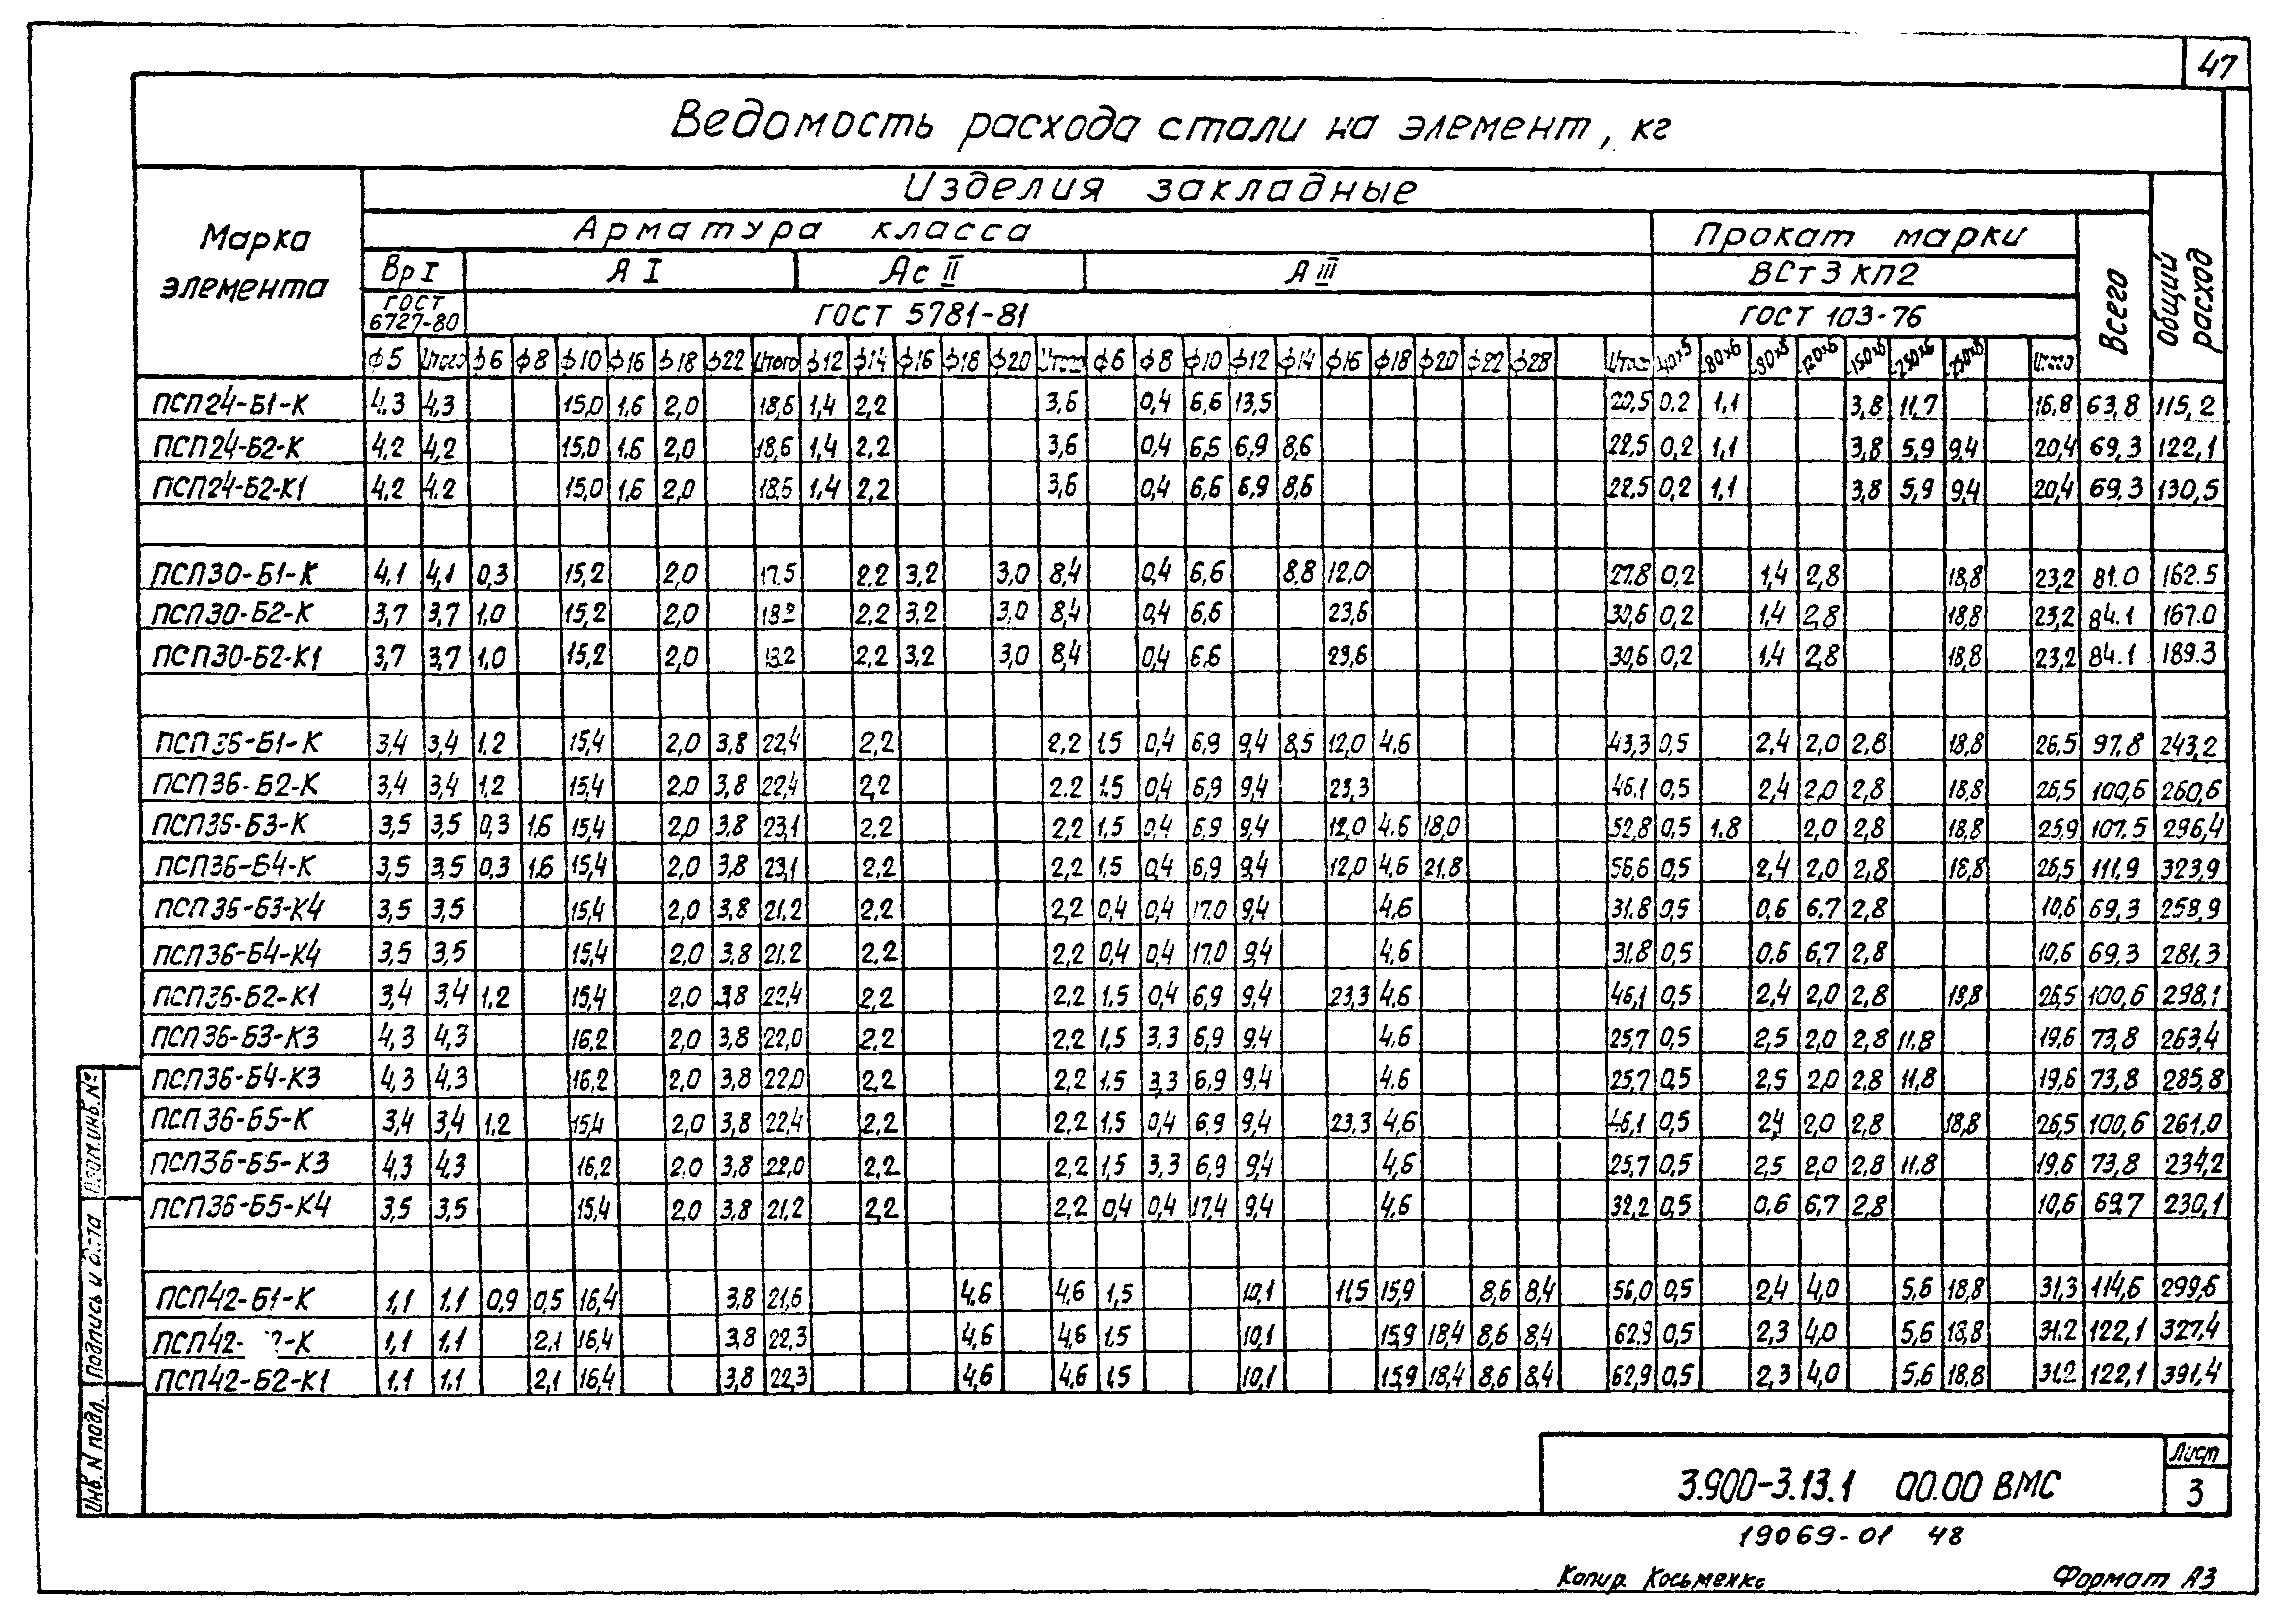 47
Ведомость расхода стали на элемент, кг
Марка элемента
Изделия закладные
Общий расход
Арматура класса
Прокат марки
Всего
Вр I
А I
Ас II
А III
ВСт3 КП2
ГОСТ 6727-80
ГОСТ 5781-81
ГОСТ 103-76
ф5 Итого ф6 ф8 ф10 ф16 ф18 ф22 Итого ф12 ф14 ф16 ф18 ф20 Итого ф6 ф8 ф10 ф12 ф14 ф16 ф18 ф20 ф22 ф28 Итого -40×5 -80×6 -80×8 -120×6 -150×6 -250×6 -250×8 Итого
ПСП24-Б1-К 4.3 4,3 15,0 1,6 2,0 18,6 1,4 2,2 3,6 0,4 6,6 13,5 20,5 0,2 1,1 3,8 11,7 16,8 63,8 115,2
ПСП24-Б2-К 4,2 4,2 15,0 1,6 2,0 18,6 1,4 2,2 3,6 0,4 6,6 6,9 8,6 22,5 0,2 1,1 3,8 5,9 9,4 20,4 69,3 122,1
ПСП24-Б2-К1 4,2 4.2 15,0 1,6 2,0 18,6 1,4 2,2 3,6 0,4 6,6 6,9 8,6 22,5 0,2 1,1 3,8 5,9 9,4 20,4 69.3 130,5
ПСП30-Б1-К 4,1 4,1 0,3 15,2 2,0 17,5 2,2 3,2 3,0 8,4 0,4 6,6 8,8 12,0 27.8 0,2 1,4 2,8 18,8 23,2 81.0 162.5
ПСП30-Б2-К 3,7 3,7 1,0 15,2 2,0 2,2 3,2 3,0 8,4 0,4 6,6 23,6 30,6 0,2 1,4 2,8 18,8 23,2 84.1 167.0
ПСП30-Б2-К1 3,7 3,7 1,0 15,2 2,0 18.2 2,2 3,2 3,0 8,4 0,4 6,6 23,6 30,6 0,2 1,4 2,8 18,8 23,2 84.1 189.3
ПСП36-Б1-К 3,4 3,4 1,2 15,4 2,0 3,8 22,4 2,2 2,2 1.5 0,4 6,9 9,4 8,5 12,0 4,6 43,3 0,5 2,4 2,0 2,8 18,8 26,5 97,8 243,2
ПСП36-Б2-К 3,4 3,4 1,2 15,4 2,0 3,8 22,4 2,2 2.2 1.5 0,4 6,9 9,4 23,3 46.1 0,5 2,4 2,0 2,8 18,8 26,5 100,6 260,6
ПСП36-Б3-К 3,5 3,5 0,3 1.6 15,4 2,0 3,8 23,1 2,2 2,2 1,5 0,4 6,9 9,4 12,0 4.6 18,0 52,8 0,5 1.8 2,0 2,8 18,8 25,9 107.5 296,4
ПСП36-Б4-К 3,5 3,5 0,3 1.6 15,4 2,0 3,8 23,1 2,2 2,2 1,5 0,4 6,9 9,4 12,0 4,6 21.8 56,6 0,5 2,4 2,0 2,8 18,8 26,5 111.9 323,9
ПСП36-Б3-К4 3,5 3,5 15,4 2,0 3,8 21.2 2,2 2,2 0,4 0,4 17.0 9,4 4,6 31.8 0,5 0,6 6.7 2,8 10,6 69,3 258,9
ПСП36-Б4-К4 3,5 3,5 15,4 2,0 3,8 21,2 2,2 2,2 0,4 0,4 17.0 9,4 4,6 31.8 0,5 0,6 6,7 2,8 10,6 69,3 281,3
ПСП36-Б2-К1 3,4 3,4 1,2 15,4 2,0 3,8 22,4 2,2 2,2 1,5 0,4 6,9 9,4 23,3 4,6 46,1 0,5 2,4 2,0 2,8 18,8 26,5 100,6 298,1
ПСП36-Б3-К3 4,3 4,3 16,2 2,0 3,8 22,0 2,2 2,2 1,5 3,3 6,9 9,4 4,6 25,7 0,5 2,5 2,0 2,8 11.8 19,6 73,8 263,4
ПСП36-Б4-К3 4,3 4,3 16,2 2,0 3,8 22,0 2,2 2,2 1.5 3,3 6,9 9,4 4.6 25,7 0,5 2,5 2,0 2,8 11,8 19,6 73,8 285,8
ПСП36-Б5-К 3,4 3,4 1,2 15,4 2,0 3,8 22,4 2,2 2,2 1,5 0,4 6,9 9,4 23,3 4,6 46,1 0,5 2,4 2,0 2,8 18,8 26,5 100,6 261,0
ПСП36-Б5-К3 4,3 4,3 16,2 2.0 3,8 22,0 2,2 2,2 1,5 3,3 6,9 9,4 4,6 25,7 0,5 2,5 2,0 2,8 11.8 19.6 73,8 234,2
ПСП36-Б5-К4 3,5 3,5 15,4 2,0 3,8 21,2 2,2 2,2 0,4 0,4 17,4 9,4 4,6 32,2 0,5 0,6 6,7 2,8 10,6 69,7 230,1
ПСП42-Б1-К 1,1 1.1 0,9 0,5 16,4 3,8 21,6 4,6 4,6 1,5 10,1 11,5 15,9 8,6 8,4 56,0 0,5 2,4 4,0 5,6 18,8 31,3 114,6 299,6
ПСП42- -К 1,1 1.1 2,1 16,4 3,8 22,3 4,6 4,6 1.5 10,1 15,9 18,4 8,6 8,4 62,9 0,5 2,3 4,0 5,6 18,8 31.2 122,1 327,4
ПСП42-Б2-К1 1.1 1.1 2,1 16,4 3,8 22,3 4,6 4,6 1,5 10,1 15,9 18,4 8,6 8,4 62,9 0,5 2,3 4,0 5,6 18,8 31.2 122,1 391,4
Инв. N подл. Подпись и дата Взам.инв.№
3.900-3.13.1 00.00 ВМС
Лист
3
19069-01 48
Копир. Косьменко
Формат А3